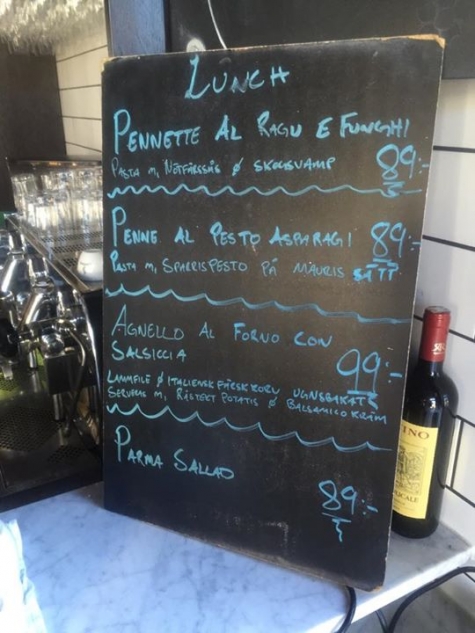 LUNCH
PENNETTE AL RAGU E FUNGHI
PASTA M, NÖTFÄRSSÅS & SKOGSVAMP 89:-
PENNE AL PESTO ASPARAGI 89:-
PASTA M, SPARRISPESTO PÅ MAURIS SÄTT
AGNELLO AL FORNO CON
SALSICCIA 99:-
LAMMFILÉ & ITALIENSK FÄRSKKORV UGNSBAKAT
SERVERAS M, RÅSTEKT POTATIS & BALSAMICO KRÄM
PARMA SALLAD
89:-
INO